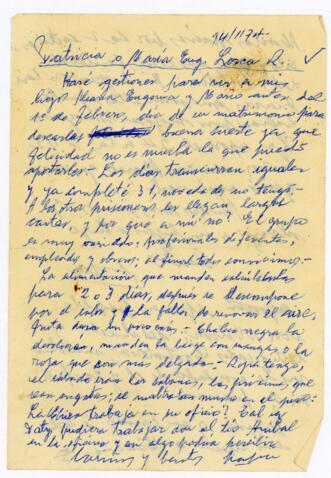 14/1/74.
Patricia o María Eug. Lorca R.
Haré gestiones para ver a mis
hijos María Eugenia y Mario antes del
1º de Febrero, día de su matrimonio para
desearles buena suerte ya que
felicidad no es mucha la que puedo
aportarles.- Los días transcurren iguales
y ya completé 31, novedad no tengo.-
A los otros prisioneros les llegan largas
cartas, y por que a mí no? El grupo
es muy variado; profesionales diferentes,
empleados y obreros, al final todos convivimos.-
La alimentación que manden calculenla
para 2 o 3 días, después se descompone
por el calor y la falta de renovar el aire,
fruta dura en poco mas.- Chaleco negro lo
devolveran, manden la beige con mangas o la
roja que son mas delgadas.- Ropa tengo,
el sábado irán las sábanas, las proximas que
sean
La trabaja en su oficio? Tal vez
Paty pudiera trabajar con el tío Aníbal
en la oficina y en algo podria
Cariños y besos